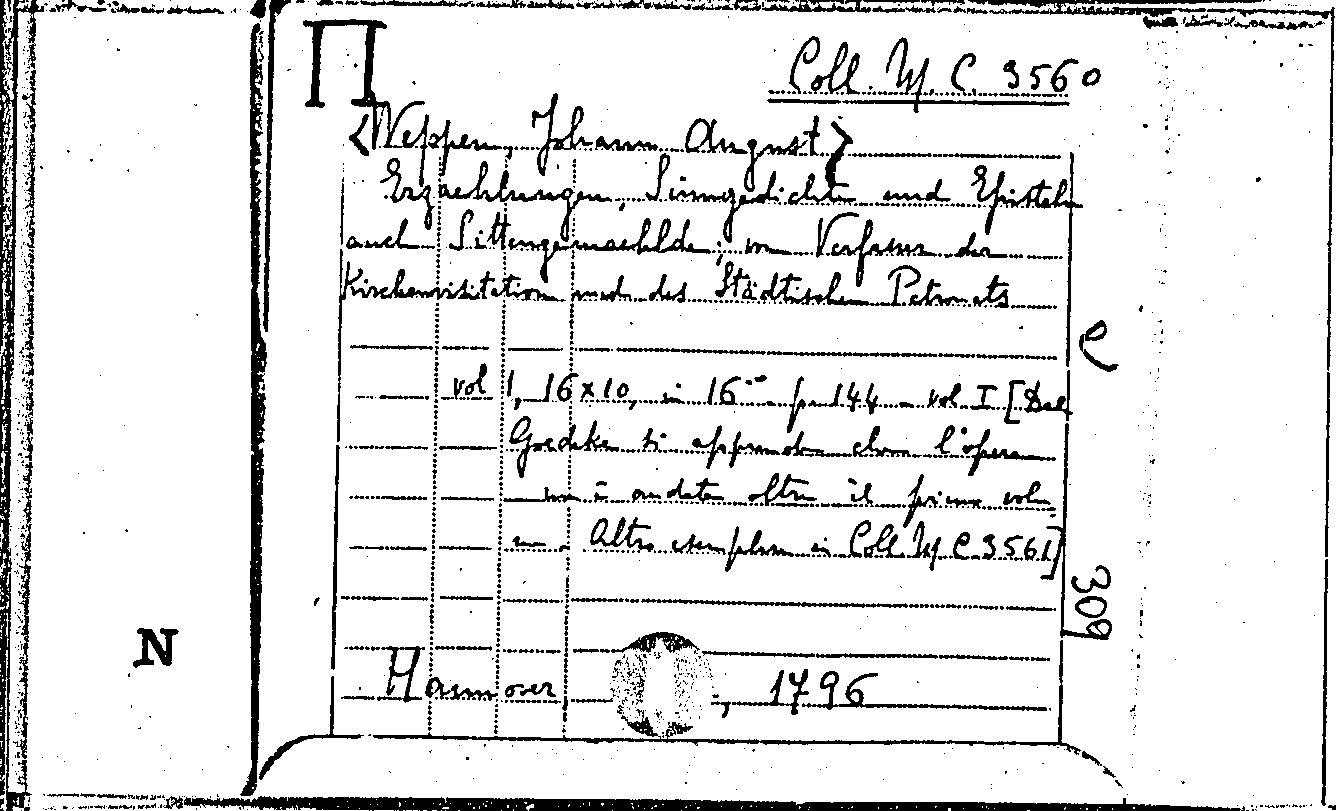 Π
Coll. M. C. 3560
<Weppen, Johann August>
Erzaehlungen, Sinngedichte und Episteln
auch Sittengemaehlde; vom Verfasser der
Kirchenvisitation und des Städtischen Patronats
e
vol 1, 16x10, in 16° p. 144 - vol I [Dal
Goedeke si apprende che l'opera
non è andata oltre il primo volu
me. Altro esemplare in Coll M C 3561]
309
N
Hannover, , 1796